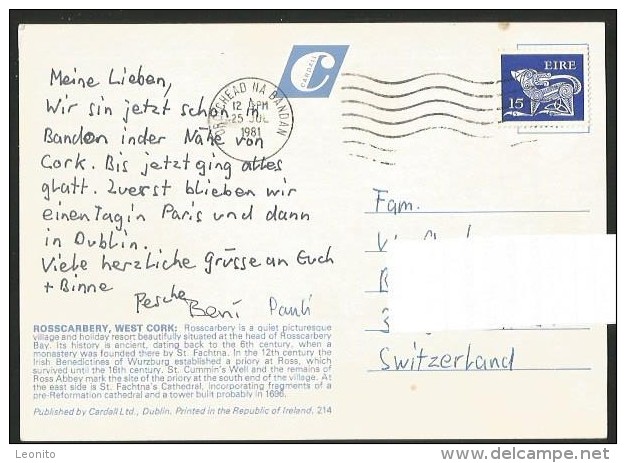 CARDALL
EIRE
15
DROICHEAD NA BANDAN
12 PM
25 JUL
1981
Meine Lieben,
Wir sin jetzt schon in
Bandon in der Nähe von
Cork. Bis jetzt ging alles
glatt. Zuerst blieben wir
einen Tag in Paris und dann
in Dublin.
Viele herzliche grüsse an Euch
+ Binne
Pesche Beni Pauli
Fam.
Switzerland
ROSSCARBERY, WEST CORK: Rosscarbery is a quiet picturesque
village and holiday resort beautifully situated at the head of Rosscarbery
Bay. Its history is ancient, dating back to the 6th century, when a
monastery was founded there by St. Fachtna. In the 12th century the
Irish Benedictines of Wurzburg established a priory at Ross, which
survived until the 16th century. St. Cummin's Well and the remains of
Ross Abbey mark the site of the priory at the south end of the village. At
the east side is St. Fachtna's Cathedral, incorporating fragments of a
pre-Reformation cathedral and a tower built probably in 1696.
Published by Cardall Ltd., Dublin. Printed in the Republic of Ireland. 214
Leonito
delcampe.net